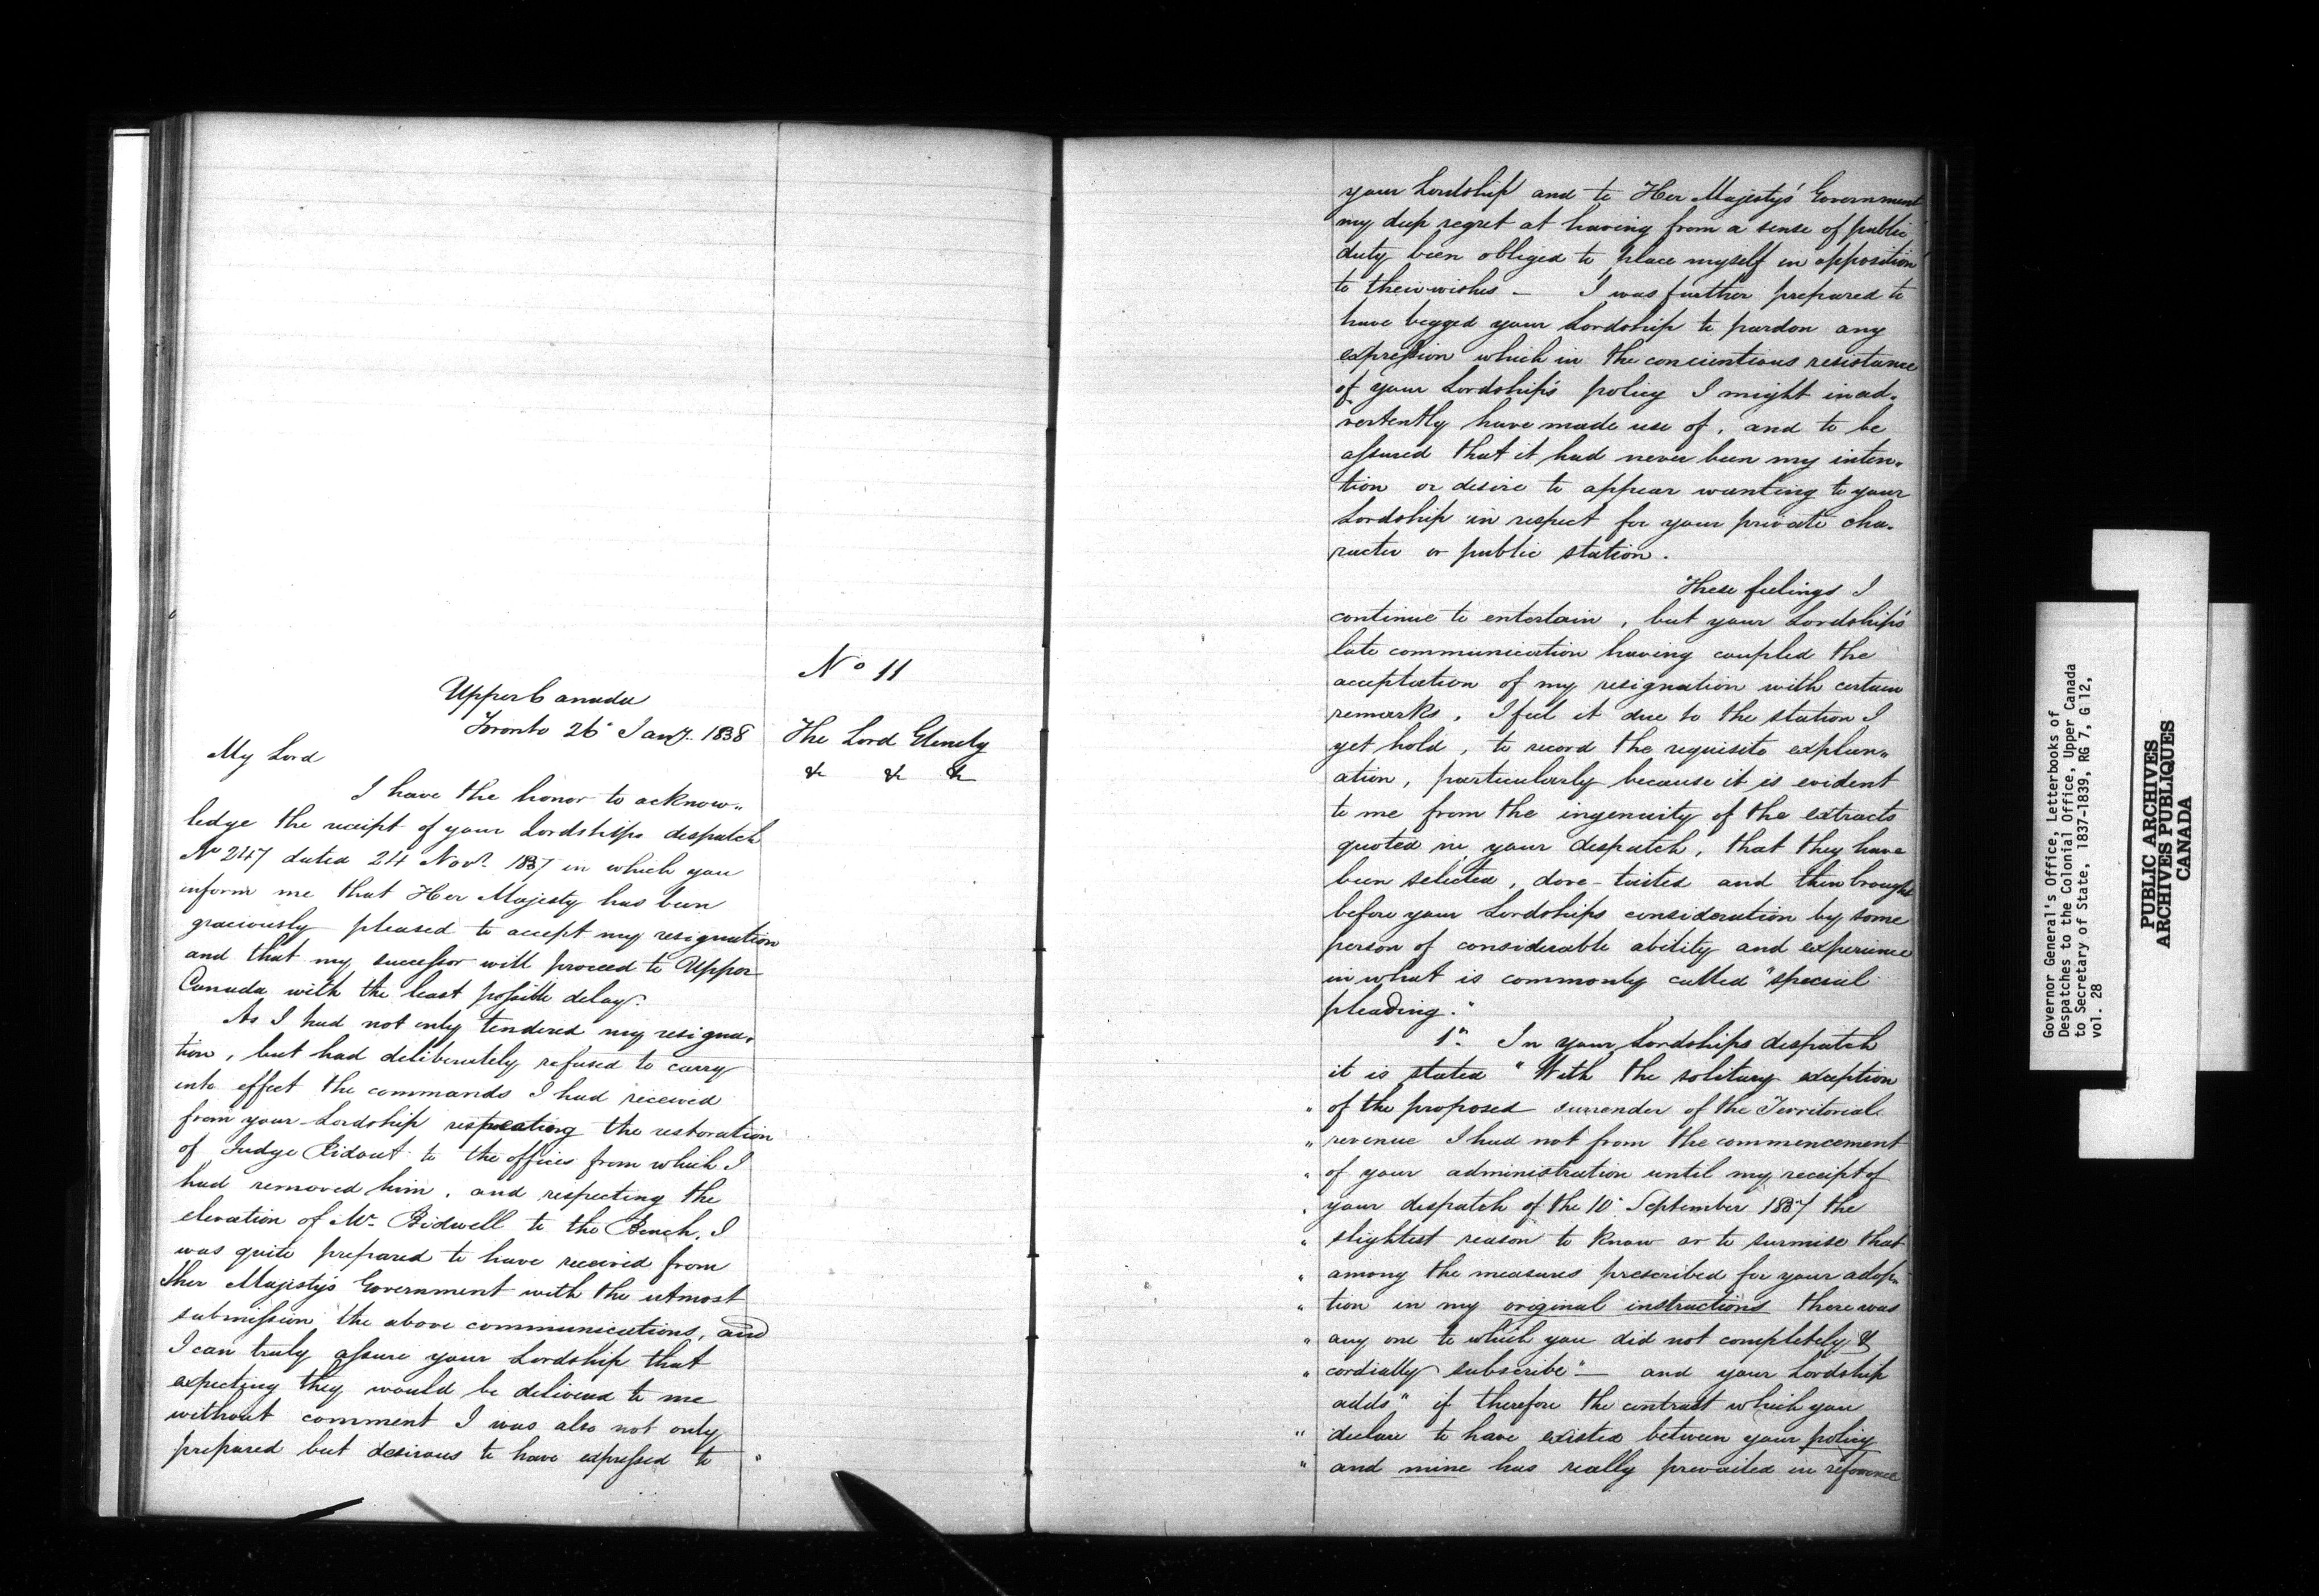 Upper Canada
Toronto 26° Jany. 1838
My Lord
I have the honor to acknow„
ledge the receipt of your Lordships despatch
No 247 dated 24 Novr. 1837 in which you
inform me that Her Majesty has been
graciously pleased to accept my resignation
and that my successor will proceed to Upper
Canada with the least possible delay.
As I had not only tendered my resigna„
tion, but had deliberately refused to carry
into effect the commands I had received
from your Lordship respecting the restoration
of Judge Ridout to the offices from which I
had removed him, and respecting the
elevation of Mr. Bidwell to the Bench, I
was quite prepared to have received from
Her Majesty's Government with the utmost
submission the above communications, and
I can truly assure your Lordship that
expecting they would be delivered to me
without comment I was also not only
prepared but desirous to have expressed to
No 11
The Lord Glenelg
& & &
your Lordship and to Her Majesty's Government
my deep regret at having from a sense of public
duty been obliged to place myself in opposition
to their wishes – I was further prepared to
have begged your Lordship to pardon any
expression which in the concientious resistance
of your Lordship's policy I might inad„
vertently have made use of, and to be
assured that it had never been my inten„
tion or desire to appear wanting to your
Lordship in respect for your private cha„
racter or public station.
These feelings I
continue to entertain, but your Lordship's
late communication having coupled the
acceptation of my resignation with certain
remarks, I feel it due to the station I
yet hold, to record the requisite explan„
ation, particularly because it is evident
to me from the ingenuity of the extracts
quoted in your despatch, that they have
been selected, dove-tailed and then brought
before your Lordships consideration by some
person of considerable ability and experience
in what is commonly called "special
pleading."
1° In your Lordships despatch
it is stated "With the solitary exception
" of the proposed surrender of the Territorial
" revenue I had not from the commencement
" of your administration until my receipt of
" your despatch of the 10° September 1837 the
" slightest reason to know or to surmise that
" among the measures prescribed for your adop„
" tion in my original instructions there was
" any one to which you did not completely &
" cordially subscribe" – and your Lordship
adds" if therefore the contrast which you
" declare to have existed between your policy
" and mine has really prevailed in reference
Governor General's Office, Letterbooks of
Despatches to the Colonial Office, Upper Canada
to Secretary of State, 1837-1839, RG 7, G 12,
vol. 28
PUBLIC ARCHIVES
ARCHIVES PUBLIQUES
CANADA